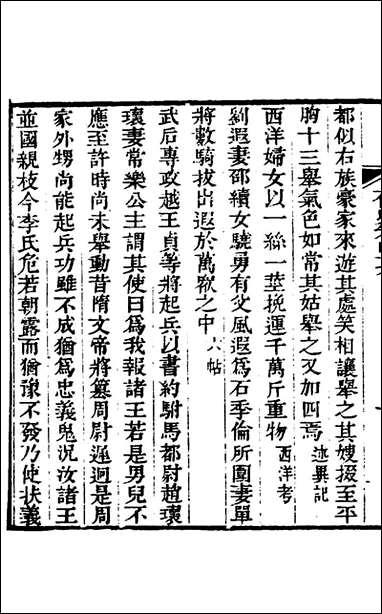 都似右族豪家來遊其處笑相讓舉之其嫂掇至平
胸十三舉氣色如常其姑舉之又加四焉 述異記
西洋婦女以一絲一莖挽運千萬斤重物 西洋考
劉遐妻邵續女驍勇有父風遐為石季倫所圍妻單
將數騎拔出遐於萬眾之中 六帖
武后專政越王貞等將起兵以書約駙馬都尉趙瓌
瓌妻常樂公主謂其使曰為我報諸王若是男兒不
應至許時尚未舉動昔隋文帝將篡周尉遲迥是周
家外甥尚能起兵功雖不成猶為忠義鬼況汝諸王
並國親枝今李氏危若朝露而猶豫不發乃使狀義